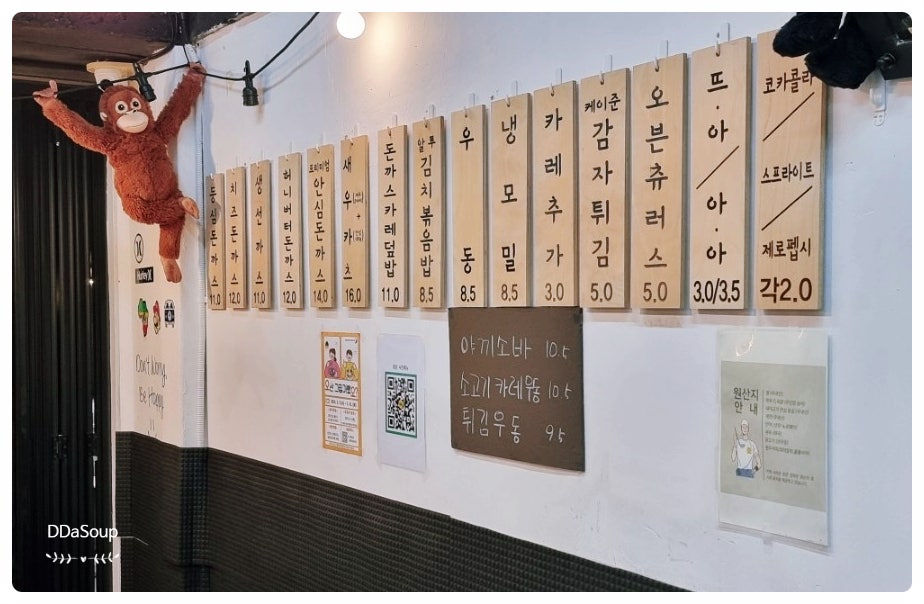 등심돈까스 11.0
치즈돈까스 12.0
생선까스 11.0
허니버터돈까스 12.0
프리미엄 안심돈까스 14.0
새우카츠 16.0
돈까스카레덮밥 11.0
알투 김치볶음밥 8.5
우동
냉모밀 8.5
카레추가 3.0
케이준 감자튀김 5.0
오븐츄러스 5.0
뜨·아/아·아 3.0/3.5
코카콜라/스프라이트/제로펩시 각2.0
야끼소바 10.5
소고기카레우동 10.5
튀김우동 9.5
원산지
안내
Hurley
Don't Worry,
Be Happy
DDaSoup